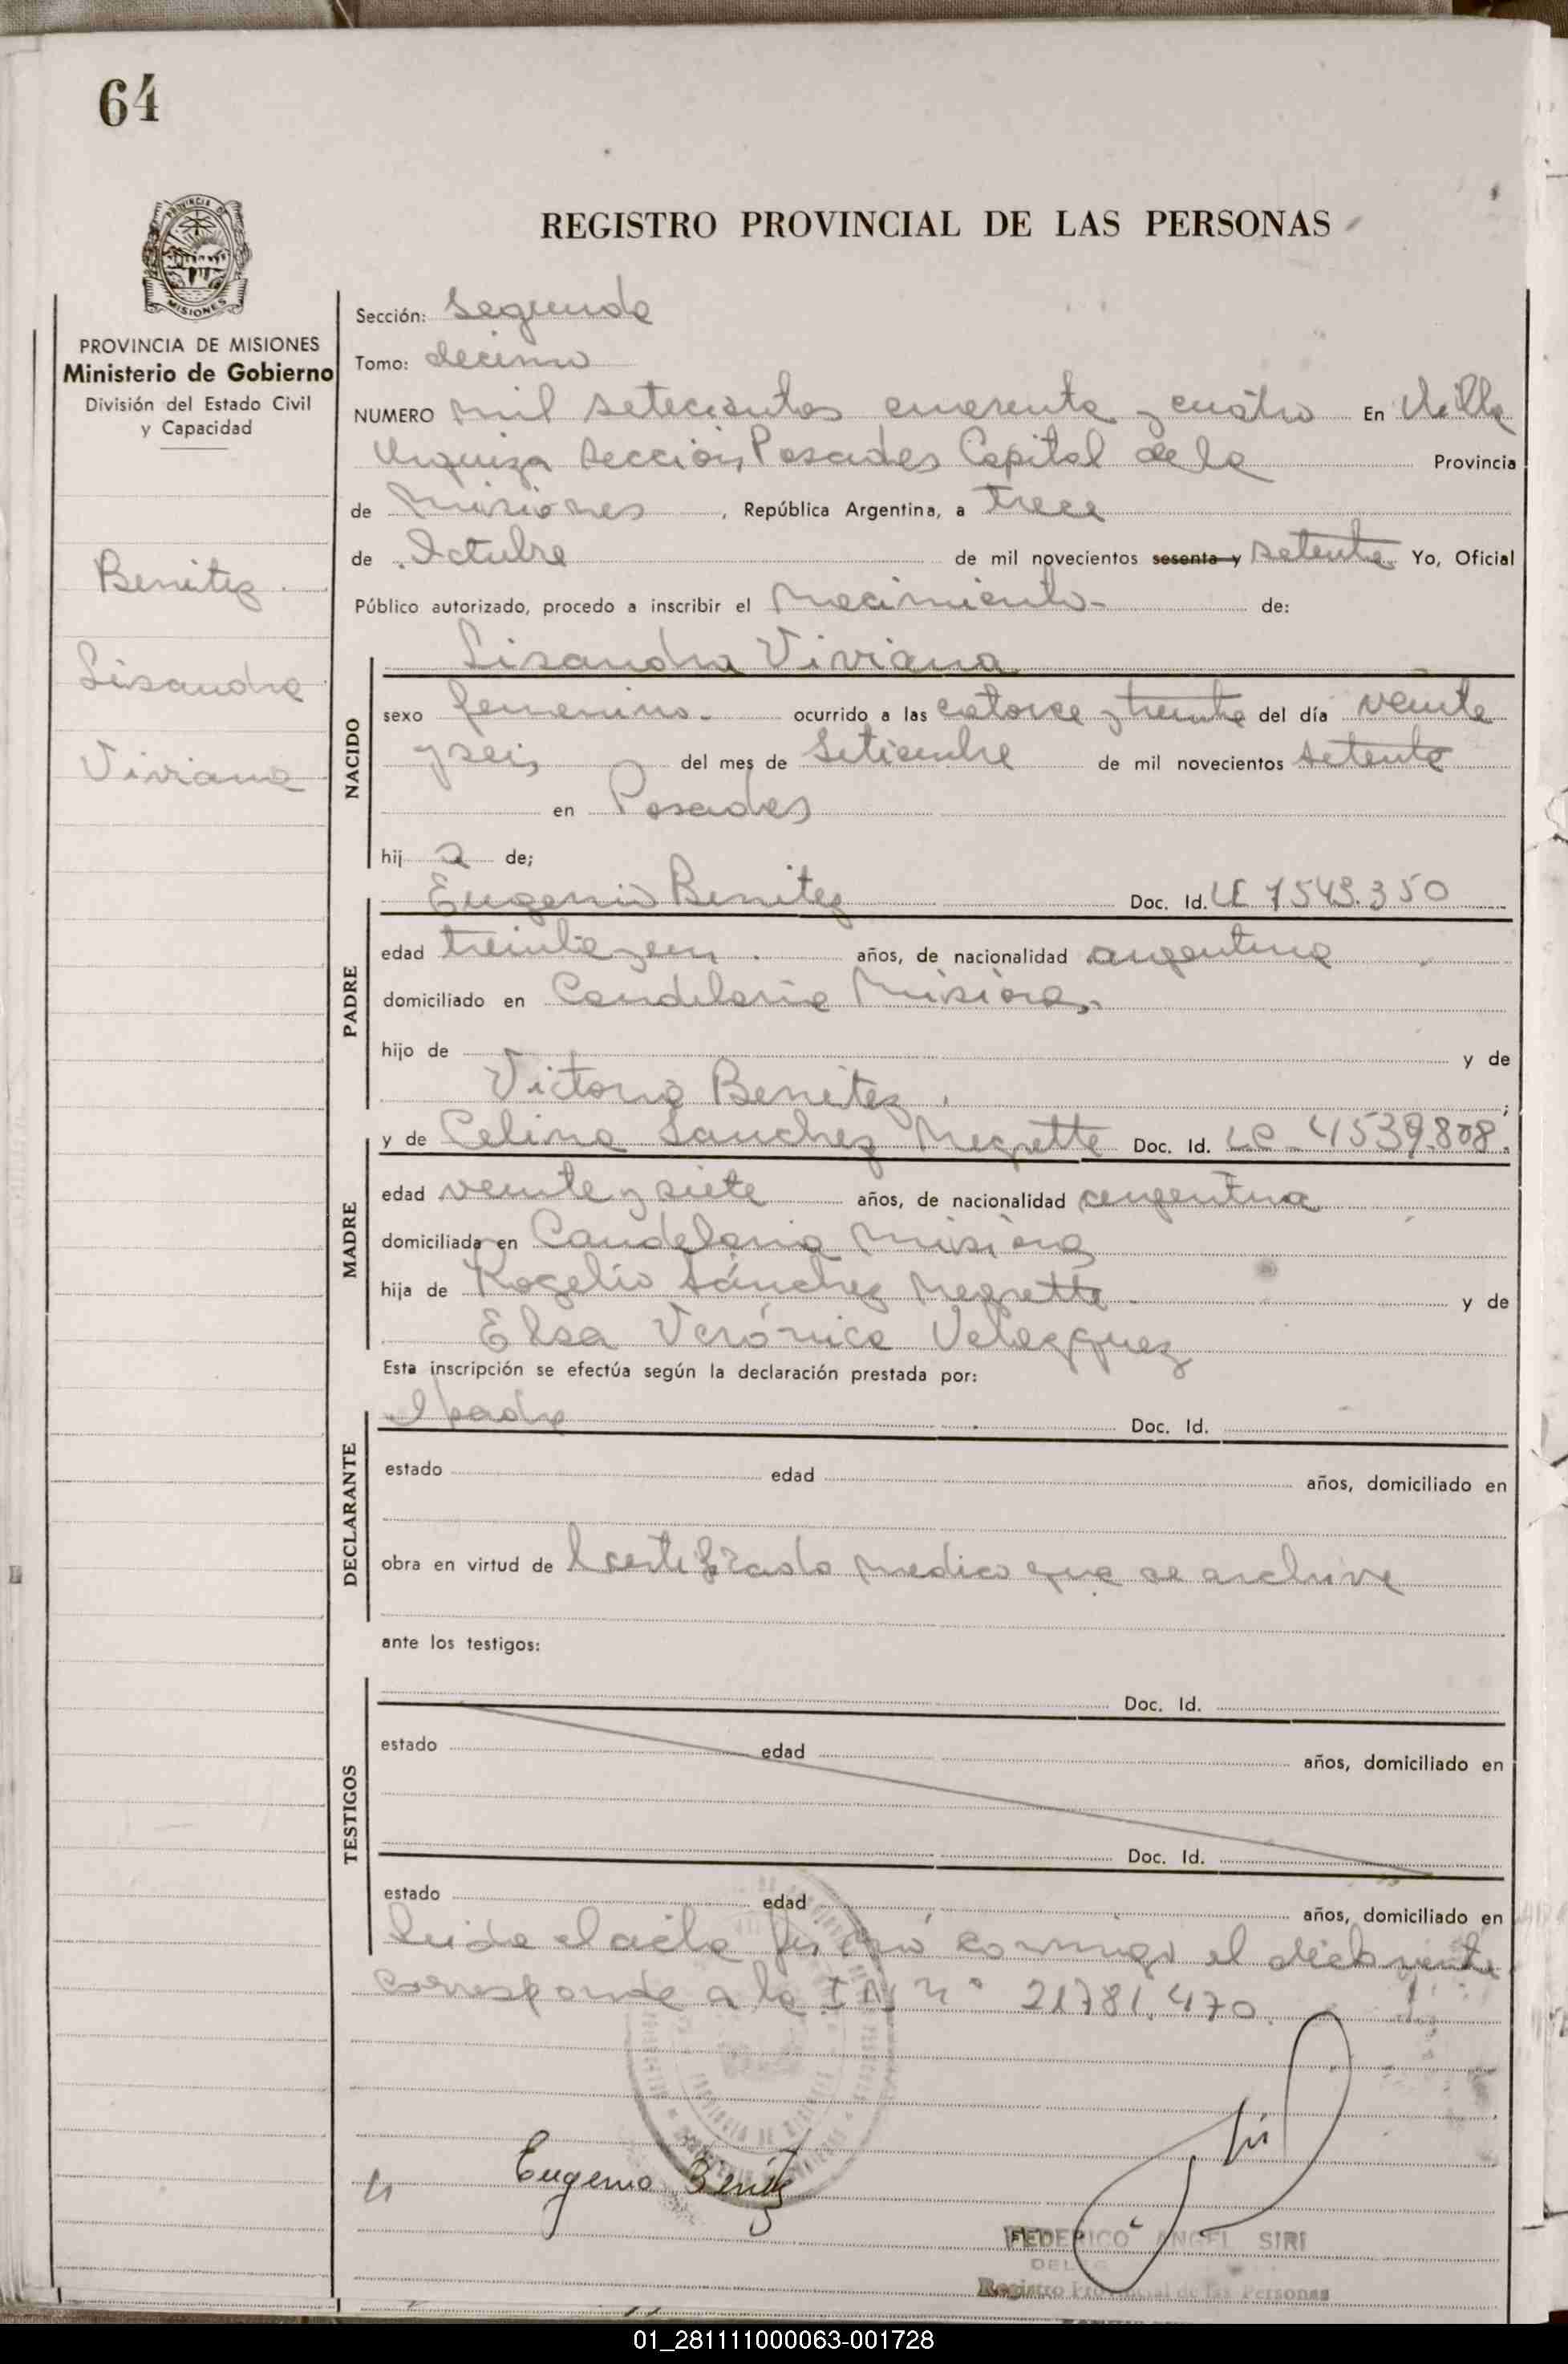 64
REGISTRO PROVINCIAL DE LAS PERSONAS
MISIONES
PROVINCIA DE MISIONES
Ministerio de Gobierno
División del Estado Civil
y Capacidad
Benitez
Lisandra
Viviana
Sección: Segunda
Tomo: decimo
NUMERO mil setecientos cuarenta y cuatro En Villa
Urquiza Sección Posadas Capital de la Provincia
de Misiones, República Argentina, a trece
de Octubre de mil novecientos sesenta y setenta Yo, Oficial
Público autorizado, procedo a inscribir el nacimiento- de:
NACIDO
Lisandra Viviana
sexo femenino- ocurrido a las catorce y treinta del día veinte
y seis del mes de Setiembre de mil novecientos setenta
en Posadas
hij a de;
PADRE
Eugenio Benitez Doc. Id. LE 7543.350
edad treinta y años, de nacionalidad argentina
domiciliado en Candelaria Misiones
hijo de y de
Victoria Benitez ;
MADRE
y de Celina Sanchez Negrette Doc. Id. LC- 4539.808.
edad veinte y siete años, de nacionalidad argentina
domiciliada en Candelaria Misiones
hija de Rogelio Sánchez Negrette y de
Elsa Verónica Velazquez
Esta inscripción se efectúa según la declaración prestada por:
DECLARANTE
el padre Doc. Id.
estado edad años, domiciliado en
obra en virtud de certificado medico que se archiva
ante los testigos:
TESTIGOS
Doc. Id.
estado edad años, domiciliado en
Doc. Id.
estado edad años, domiciliado en
Leida el acta firmó conmigo el declarante
corresponde a la nº 21781.470
Eugenio Benitez
FEDERICO ANGEL SIRI
Registro Provincial de las Personas
01_281111000063-001728